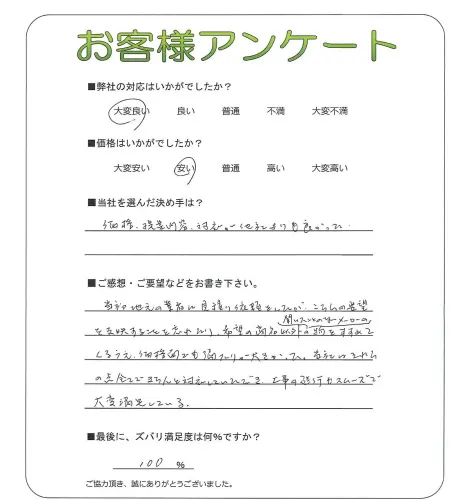 お客様アンケート
■弊社の対応はいかがでしたか？
大変良い 良い 普通 不満 大変不満
■価格はいかがでしたか？
大変安い 安い 普通 高い 大変高い
■当社を選んだ決め手は？
価格、提案内容、対応が他社よりも良かった。
■ご感想・ご要望などをお書き下さい。
当初地元の業者に見積り依頼をしたが、こちらの希望
聞いたことのないメーカーの
を反映することを 希望の商品以外の物をすすめて
くるうえ、価格面でも 大きかった。
の点全てできちんと対応していただき、工事の進行もスムーズで
大変満足している。
■最後に、ズバリ満足度は何%ですか？
100 %
ご協力頂き、誠にありがとうございました。